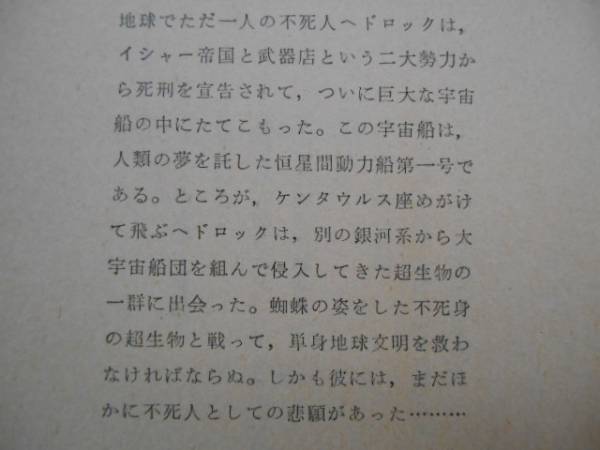 地球でただ一人の不死人ヘドロックは，
イシャー帝国と武器店という二大勢力か
ら死刑を宣告されて，ついに巨大な宇宙
船の中にたてこもった。この宇宙船は，
人類の夢を託した恒星間動力船第一号で
ある。ところが，ケンタウルス座めがけ
て飛ぶヘドロックは，別の銀河系から大
宇宙船団を組んで侵入してきた超生物の
一群に出会った。蜘蛛の姿をした不死身
の超生物と戦って，単身地球文明を救わ
なければならぬ。しかも彼には，まだほ
かに不死人としての悲願があった………